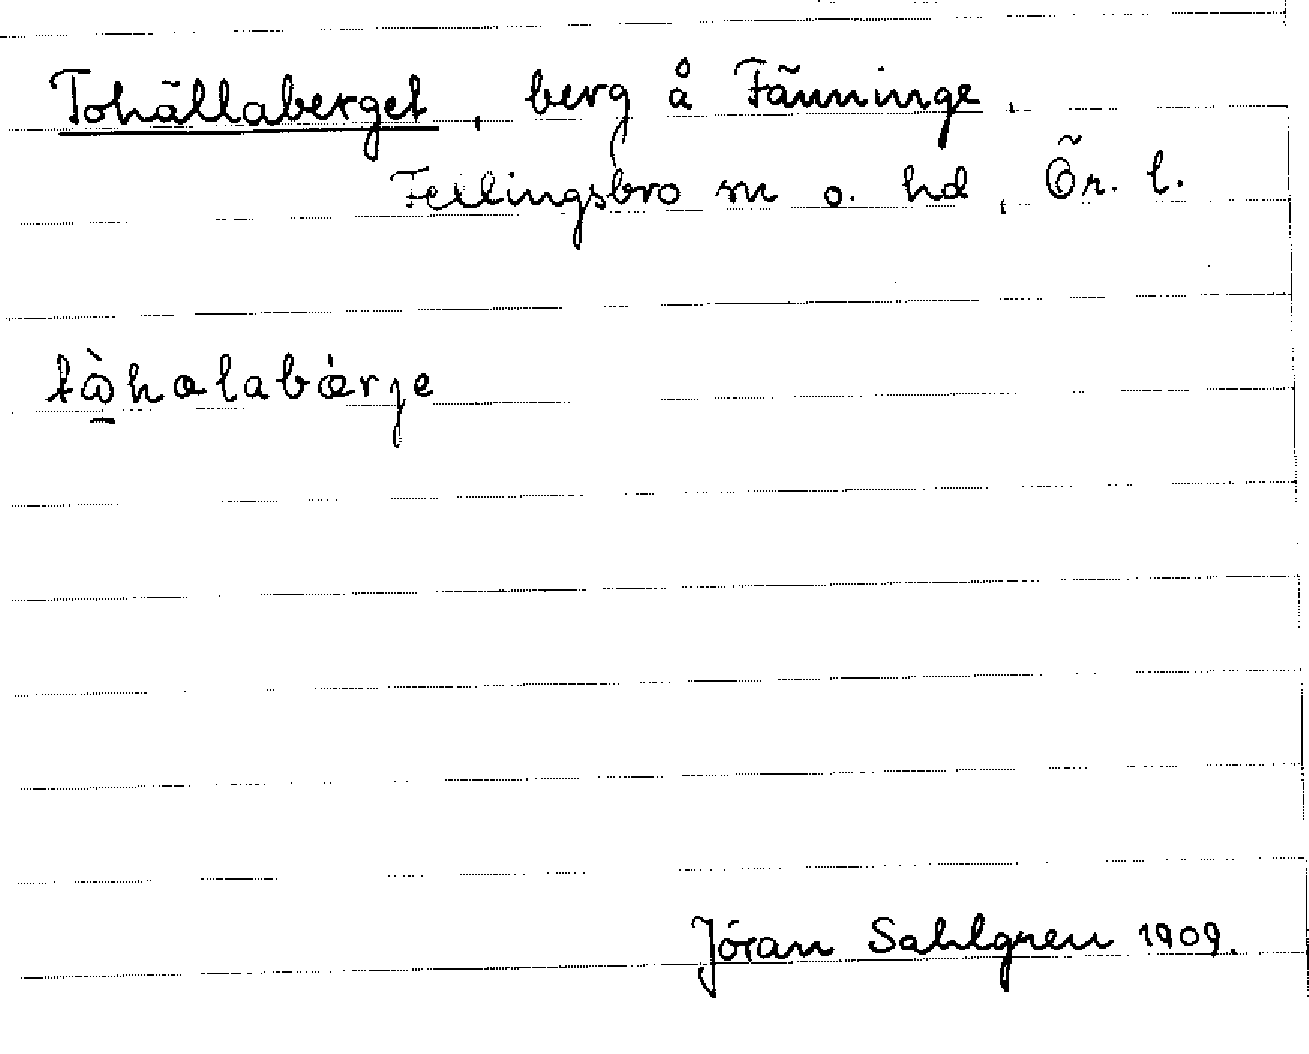 Tohällaberget, berg å Fänninge,
Fellingsbro sn o. hd, Ör. l.
tѽhalabǽrje
Jöran Sahlgren 1909.